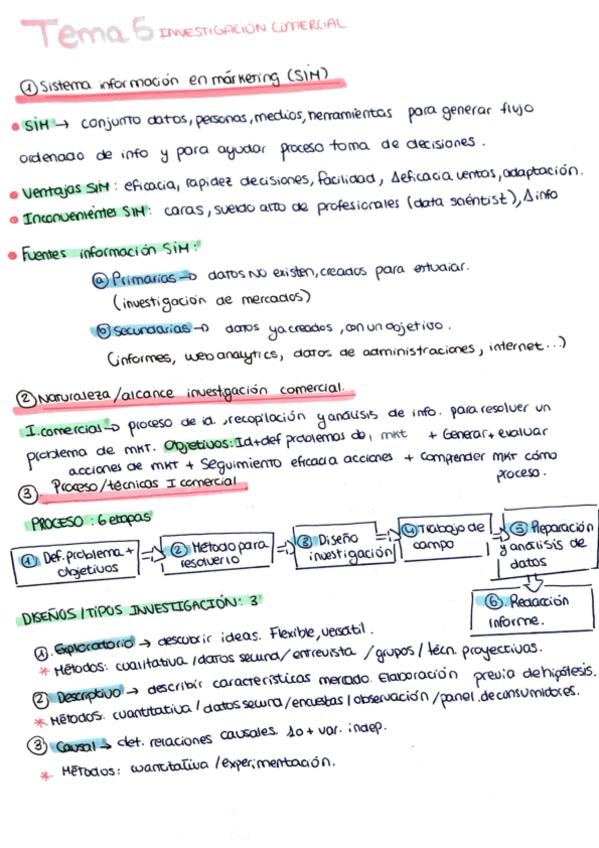 Tema 5 INVESTIGACIÓN COMERCIAL
① Sistema información en márketing (SIM)
• SIM → conjunto datos, personas, medios, herramientas para generar flujo
ordenado de info y para ayudar proceso toma de decisiones.
• Ventajas SIM: eficacia, rapidez decisiones, facilidad, Δeficacia ventas, adaptación.
• Inconvenientes SIM: caras, sueldo alto de profesionales (data scientist), Δinfo
• Fuentes información SIM:
ⓐ Primarias → datos NO existen, creados para estudiar.
(investigación de mercados)
ⓑ Secundarias → datos ya creados, con un objetivo.
(informes, web analytics, datos de administraciones, internet...)
② Naturaleza/alcance investigación comercial.
I. comercial → proceso de id., recopilación y análisis de info. para resolver un
problema de mkt. Objetivos: Id+def problemas do, mkt + Generar + evaluar
acciones de mkt + Seguimiento eficacia acciones + comprender mkt cómo
proceso.
③. Proceso/técnicas I comercial
PROCESO: 6 etapas
① Def. problema + objetivos ⇒ ② Método para resolverlo ⇒ ③ Diseño investigación ⇒ ④ Trabajo de campo ⇒ ⑤ Preparación y análisis de datos
⑥. Redacción informe.
DISEÑOS/TIPOS INVESTIGACIÓN: 3
①. Exploratorio → descubrir ideas. Flexible, versátil.
* Métodos: cualitativa/datos secund/entrevista/grupos/técn. proyectivas.
② Descriptivo → describir características mercado. Elaboración previa de hipótesis.
* Métodos: cuantitativa/datos secund/encuestas/observación/panel de consumidores.
③ Causal → det. relaciones causales. 1o + var. indep.
* Métodos: cuantitativa/experimentación.